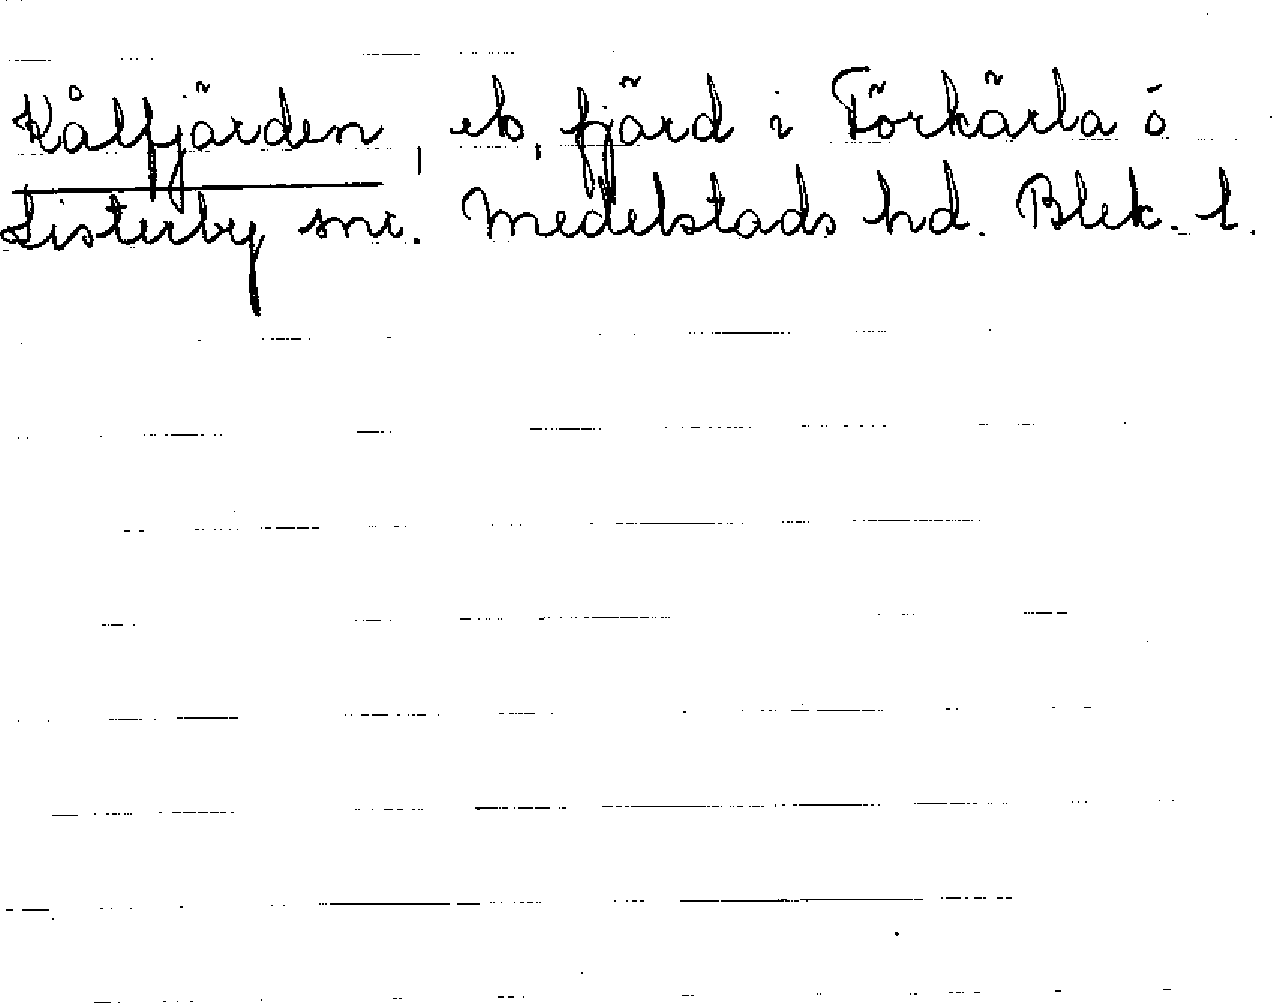 Kålfjärden, fjärd i Förkärla o
Listerby snr. Medelstads hd. Blek. l.